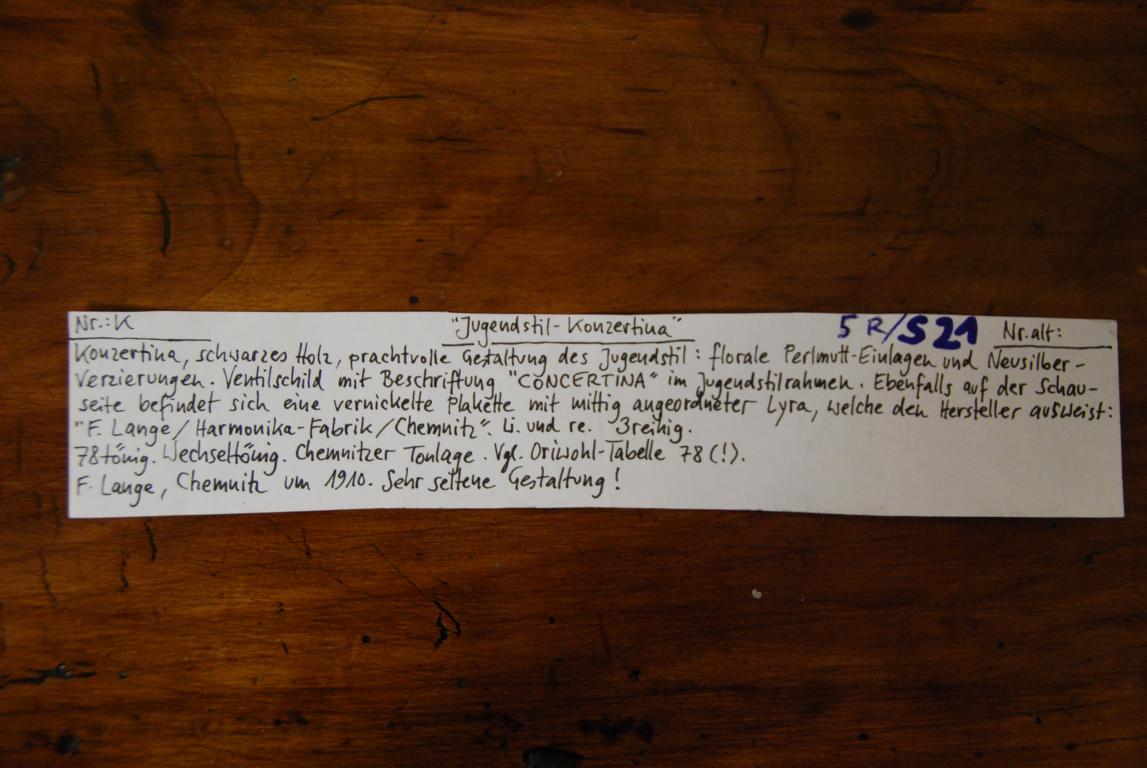 Nr.: K "Jugendstil-Konzertina" 5 R/S21 Nr. alt:
Konzertina, schwarzes Holz, prachtvolle Gestaltung des Jugendstil: florale Perlmutt-Einlagen und Neusilber-
Verzierungen. Ventilschild mit Beschriftung "CONCERTINA" im Jugendstilrahmen. Ebenfalls auf der Schau-
seite befindet sich eine vernickelte Plakette mit mittig angeordneter Lyra, welche den Hersteller ausweist:
"F. Lange/Harmonika-Fabrik/Chemnitz". Li. und re. 3reihig.
78tönig. Wechseltönig. Chemnitzer Tonlage. Vgl. Oriwohl-Tabelle 78(!).
F. Lange, Chemnitz um 1910. Sehr seltene Gestaltung!